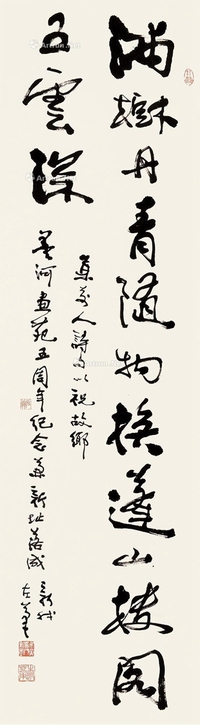 满树丹青随物换蓬山楼阁
五云深
集前人诗句以祝故乡
墨河画苑五周年纪念兼新址落成